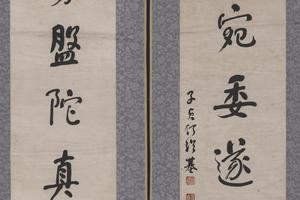 宛委遂
子貞何紹基
盤陀真